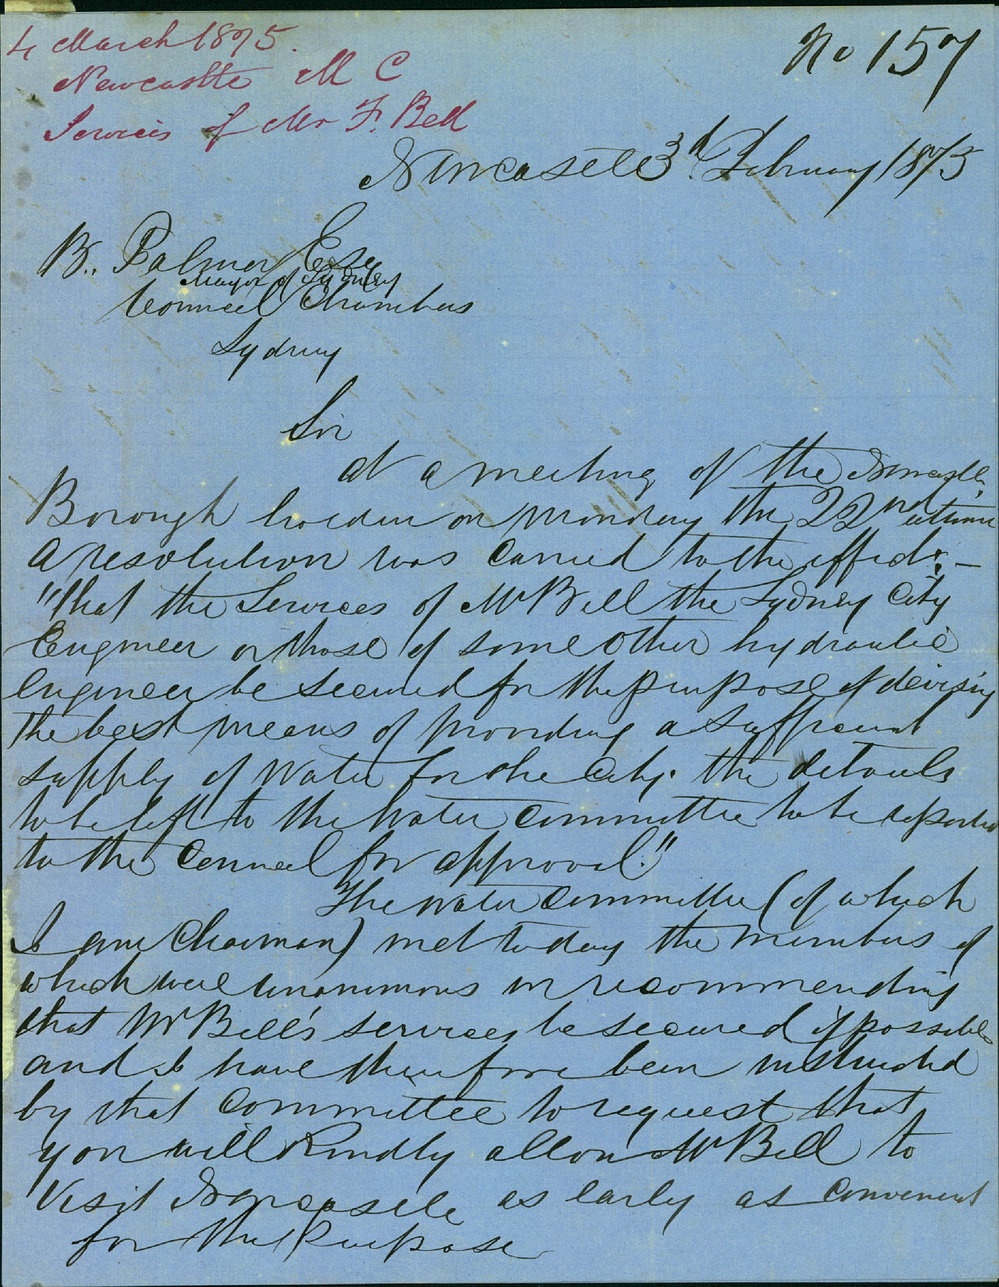 4 March 1875.
Newcastle M C
Services of Mr F. Bell
No 157
Newcastle 3d February 1875
B. Palmer Esq
Mayor of Sydney
Council Chambers
Sydney
Sir
At a meeting of the Newcastle
Borough holden on Monday the 22nd ultimo
a resolution was carried to the effect:—
"That the Services of Mr Bell the Sydney City
Engineer or those of some other hydraulic
engineer be secured for the purpose of devising
the best means of providing a sufficient
supply of Water for the City. the details
to be left to the Water Committee to be reported
to the Council for approval."
The Water Committee (of which
I am Chairman) met today the members of
which were unanimous in recommending
that Mr Bell's services be secured if possible
and I have therefore been instructed
by that Committee to request that
you will Kindly allow Mr Bell to
Visit Newcastle as early as convenient
for the Purpose